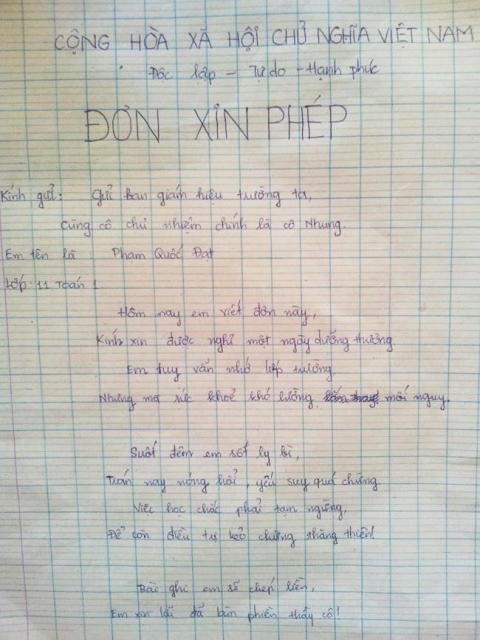 CỘNG HÒA XÃ HỘI CHỦ NGHĨA VIỆT NAM
Độc lập - Tự do - Hạnh phúc
ĐƠN XIN PHÉP
Kính gửi: Gửi ban giám hiệu trường ta,
Cùng cô chủ nhiệm chính là cô Nhung.
Em tên là Phạm Quốc Đạt
Lớp: 11 Toán 1
Hôm nay em viết đơn này,
Kính xin được nghỉ một ngày dưỡng thương
Em tuy vẫn nhớ lớp trường
Nhưng mà sức khoẻ khó lường mối nguy.
Suốt đêm em sốt ly bì,
Trán nay nóng hổi, yếu suy quá chừng
Việc học chắc phải tạm ngừng,
Để còn điều trị kẻo chừng thăng thiên!
Bài ghi em sẽ chép liền,
Em xin lỗi đã làm phiền thầy cô!